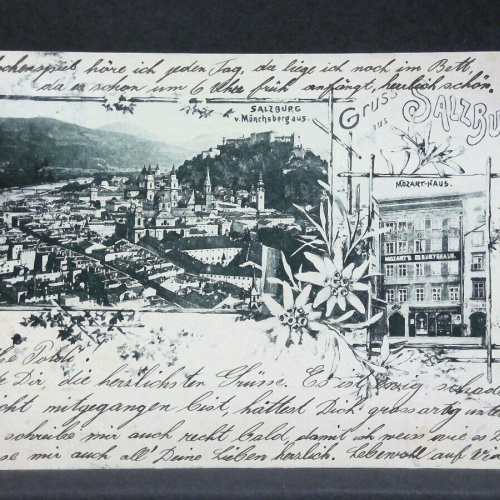 ockenspiel höre ich jeden Tag, da liege ich noch im Bett,
da es schon um 6 Uhr früh anfängt, herrlich schön.
SALZBURG
v. Mönchsberg aus.
Gruss aus SALZBU
MOZART-HAUS.
MOZART'S GEBURTSHAUS.
be Poldi!
Dir, die herzlichsten Grüsse. Es ist schade
cht mitgegangen bist, hättest Dich grossartig unte
schreibe mir auch recht bald, damit ich weiss wie es D
se mir auch all' Deine Lieben herzlich. Lebewohl auf